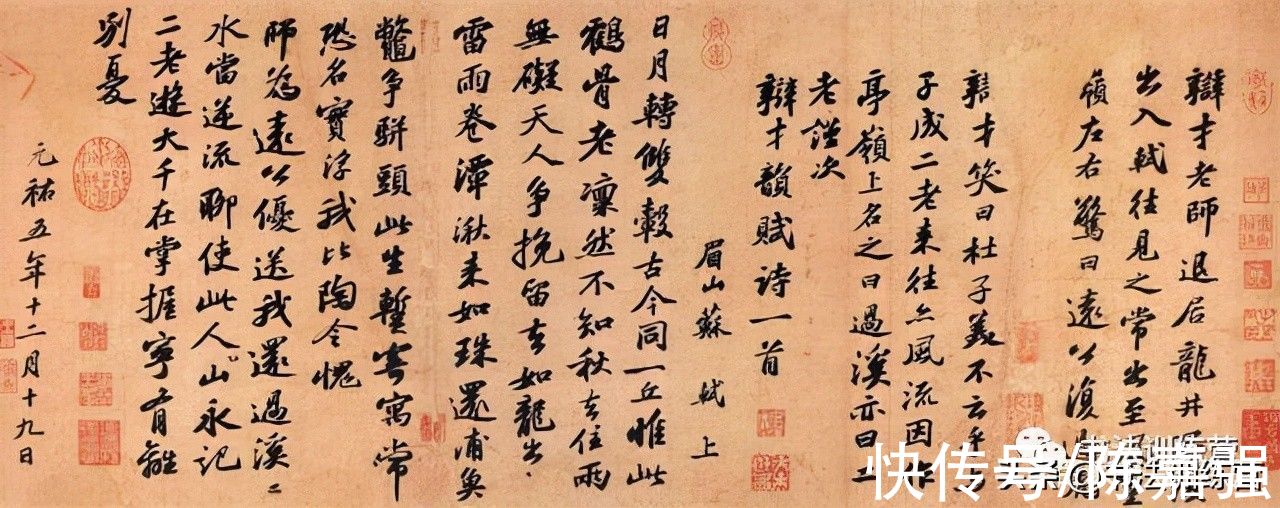 辯才老師退居龍井
出入軾往見之常出至
嶺左右驚曰遠公復
辯才笑曰杜子美不云乎與
子成二老来往亦風流因作
亭嶺上名之曰過溪亦曰二
老謹次
辯才韻賦詩一首
眉山蘇軾上
日月轉雙轂古今同一丘惟此
鶴骨老凛然不知秋去住兩
無礙天人争挽留去如龍出
雷雨卷潭湫来如珠還浦魚
鼈争駢頭此生暫寄寓常
恐名實浮我比陶令愧
師為遠公優送我還過溪〻
水當逆流聊使此人山永記
二老遊大千在掌握寧有離
別憂
元祐五年十二月十九日
快传号/陈嘉强